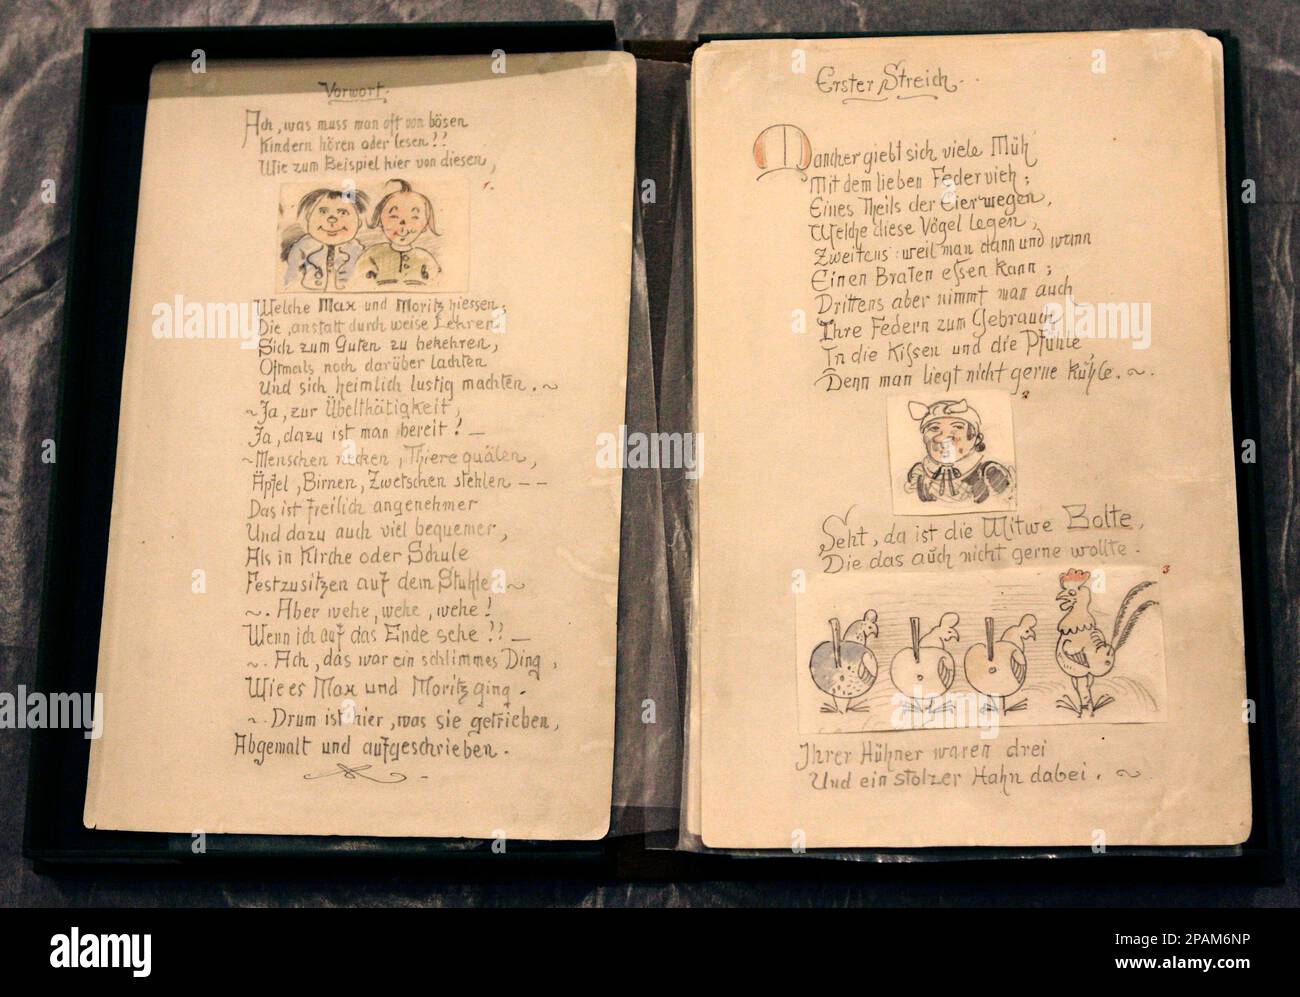 Vorwort.
Ach, was muss man oft von bösen
Kindern hören oder lesen!!
Wie zum Beispiel hier von diesen,
1.
Welche Max und Moritz hiessen;
Die, anstatt durch weise Lehren
Sich zum Guten zu bekehren,
Oftmals noch darüber lachten
Und sich heimlich lustig machten. ~
~ Ja, zur Übelthätigkeit,
Ja, dazu ist man bereit! —
~ Menschen necken, Thiere quälen,
Äpfel, Birnen, Zwetschen stehlen – –
Das ist freilich angenehmer
Und dazu auch viel bequemer,
Als in Kirche oder Schule
Festzusitzen auf dem Stuhle. ~
~. Aber wehe, wehe, wehe!
Wenn ich auf das Ende sehe!! —
~. Ach, das war ein schlimmes Ding,
Wie es Max und Moritz ging.
~. Drum ist hier, was sie getrieben,
Abgemalt und aufgeschrieben.
Erster Streich.
Mancher giebt sich viele Müh
Mit dem lieben Federvieh;
Eines Theils der Eier wegen,
Welche diese Vögel legen,
Zweitens: weil man dann und wann
Einen Braten essen kann;
Drittens aber nimmt man auch
Ihre Federn zum Gebrauch
In die Kissen und die Pfühle,
Denn man liegt nicht gerne kühle. ~.
2
Seht, da ist die Witwe Bolte,
Die das auch nicht gerne wollte.
3
Ihrer Hühner waren drei
Und ein stolzer Hahn dabei. ~
alamy
Image ID: 2PAM6NP
www.alamy.com